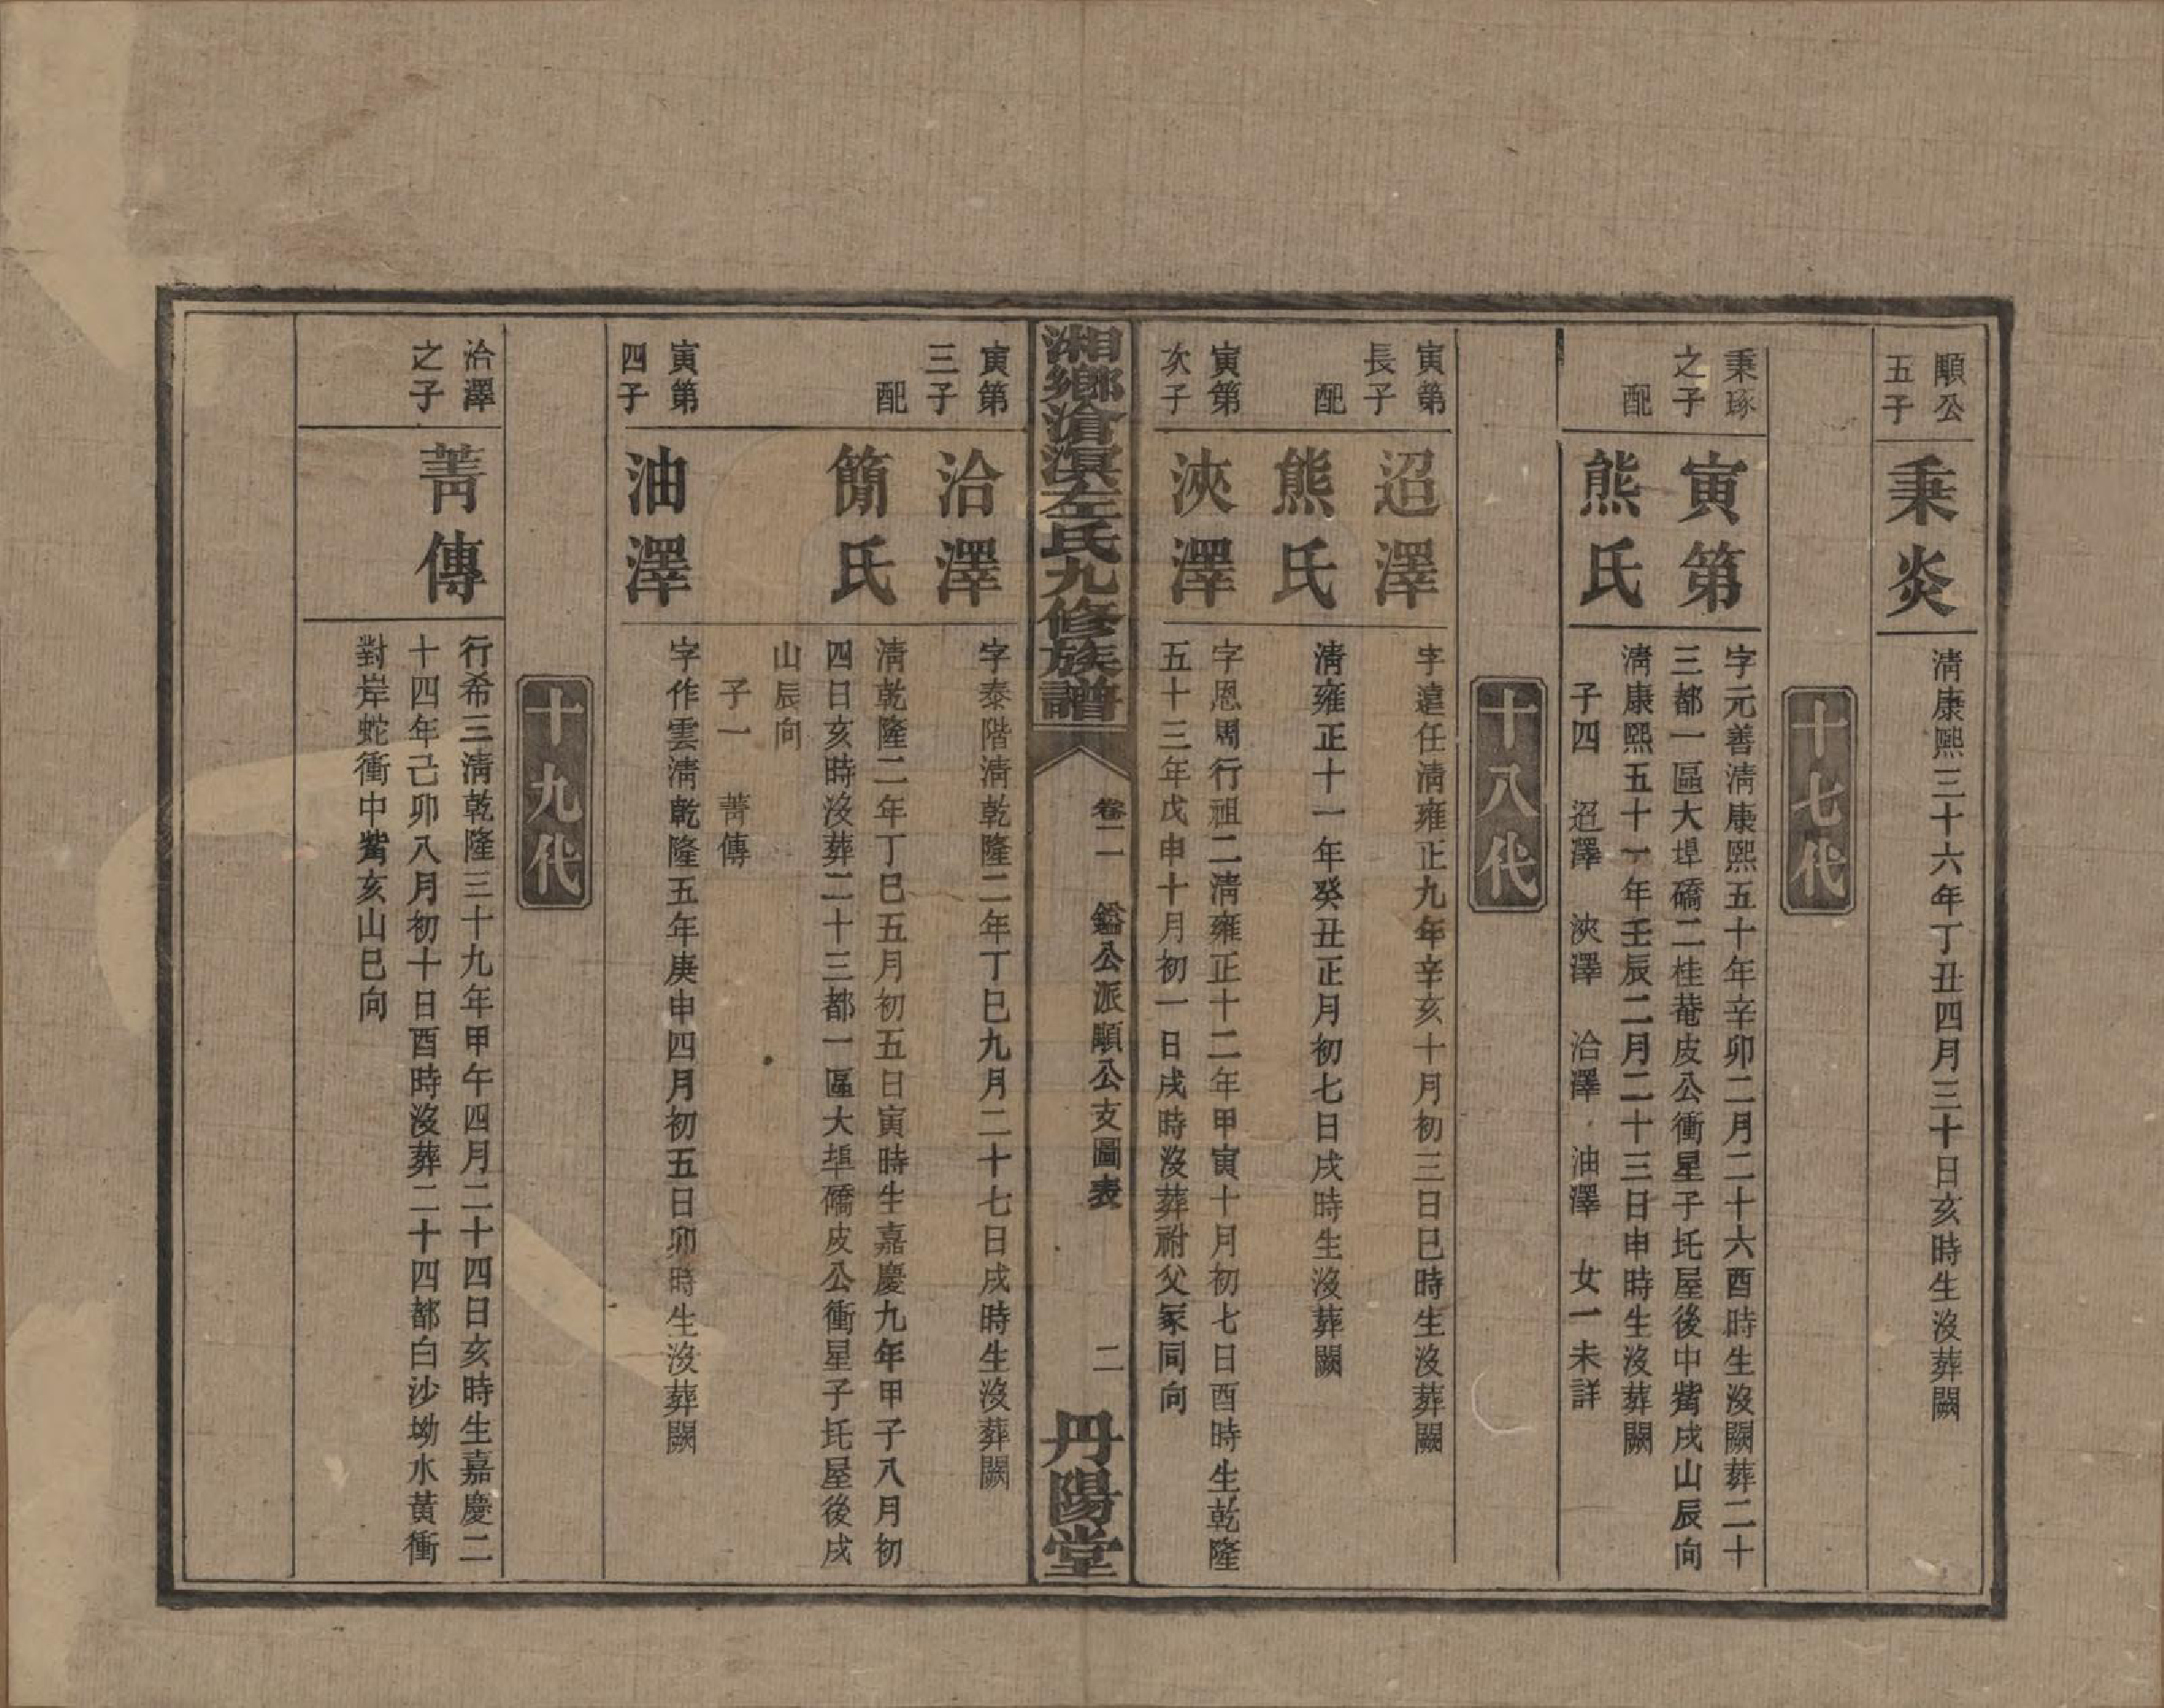 順公
五子
秉炎
清康熙三十六年丁丑四月三十日亥時生沒葬闕
十七代
秉琢
之子
寅第
字元善清康熙五十年辛卯二月二十六酉時生沒闕葬二十
三都一區大埠礄二桂菴皮公衝星子圫屋後中嘴戌山辰向
配
熊氏
清康熙五十一年壬辰二月二十三日申時生沒葬闕
子四　迢澤　浹澤　洽澤　油澤　女一未詳
十八代
寅第
長子
迢澤
字遠任清雍正九年辛亥十月初三日巳時生沒葬闕
配
熊氏
清雍正十一年癸丑正月初七日戌時生沒葬闕
寅第
次子
浹澤
字恩周行祖二清雍正十二年甲寅十月初七日酉時生乾隆
五十三年戊申十月初一日戌時沒葬祔父冢同向
湘鄉滄溟左氏九修族譜
卷二　鎰公派順公支圖表
二
丹陽堂
寅第
三子
洽澤
字泰階清乾隆二年丁巳九月二十七日戌時生沒葬闕
配
簡氏
清乾隆二年丁巳五月初五日寅時生嘉慶九年甲子八月初
四日亥時沒葬二十三都一區大埠礄皮公衝星子圫屋後戌
山辰向
子一　菁傳
寅第
四子
油澤
字作雲清乾隆五年庚申四月初五日卯時生沒葬闕
十九代
洽澤
之子
菁傳
行希三清乾隆三十九年甲午四月二十四日亥時生嘉慶二
十四年己卯八月初十日酉時沒葬二十四都白沙坳水黃衝
對岸蛇衝中嘴亥山巳向